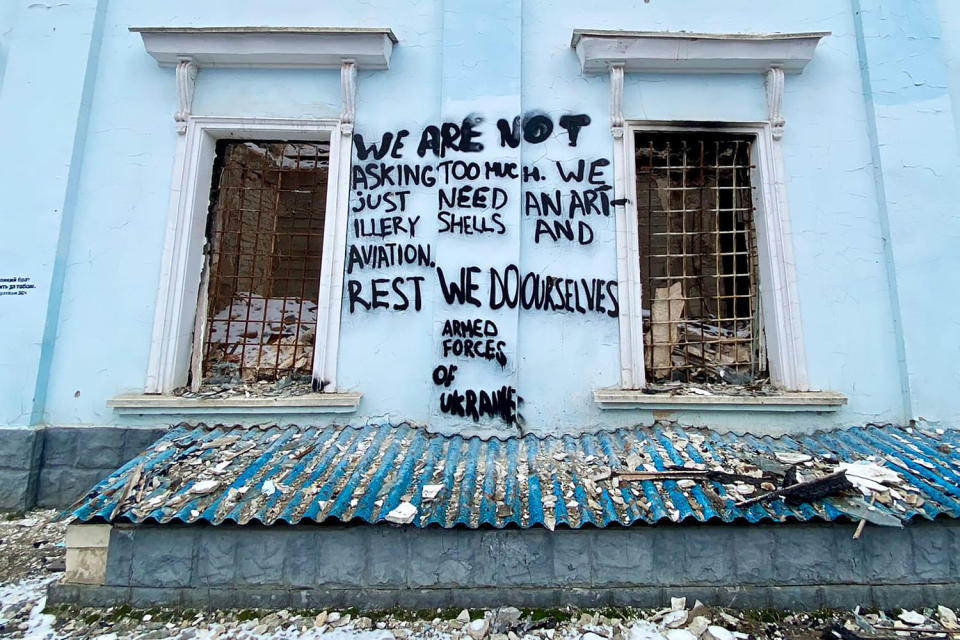 WE ARE NOT
ASKING TOO MUCH. WE
JUST NEED AN ARTI-
ILLERY SHELLS AND
AVIATION.
REST WE DO OURSELVES
ARMED
FORCES
OF
UKRAINE
брат